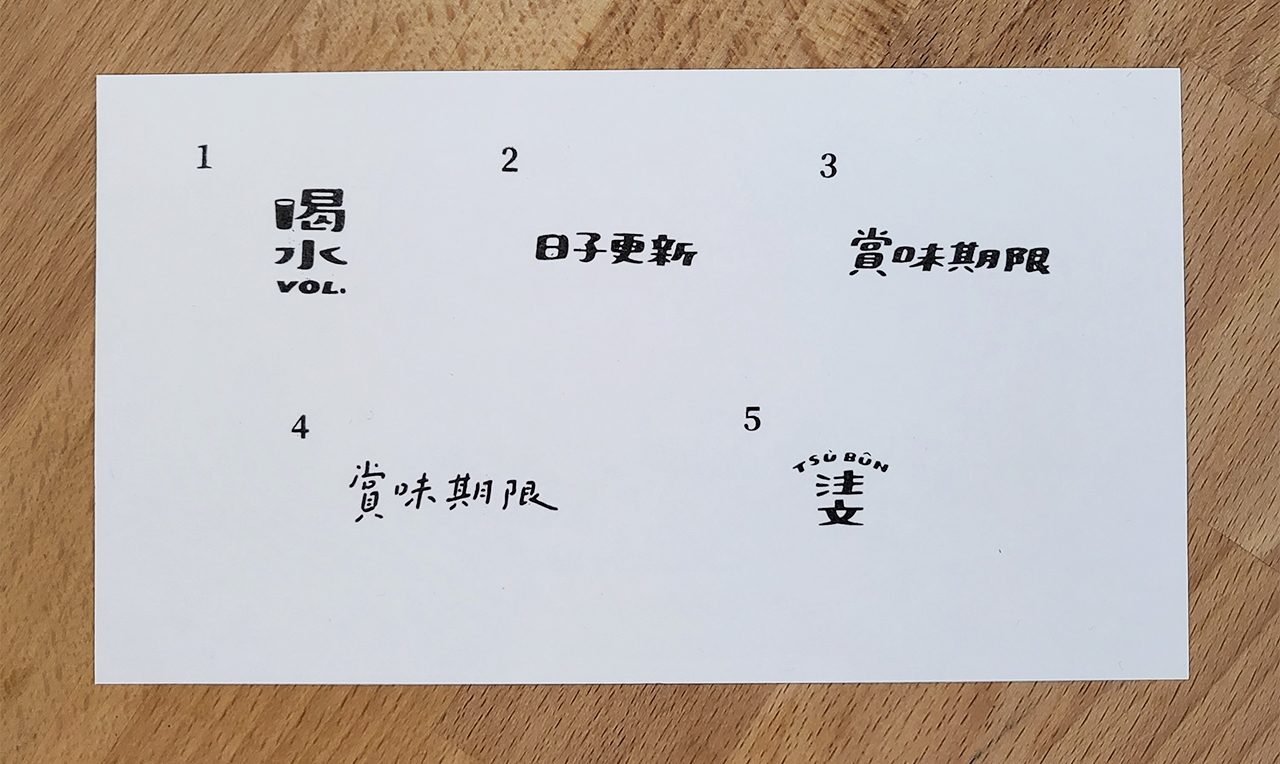 1
喝
水
VOL.
2
日子更新
3
賞味期限
4
賞味期限
5
TSÙ BÛN
注
文